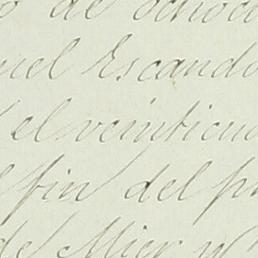 de ochoci
uel Escando
el veinticua
fin del p
de Mier y